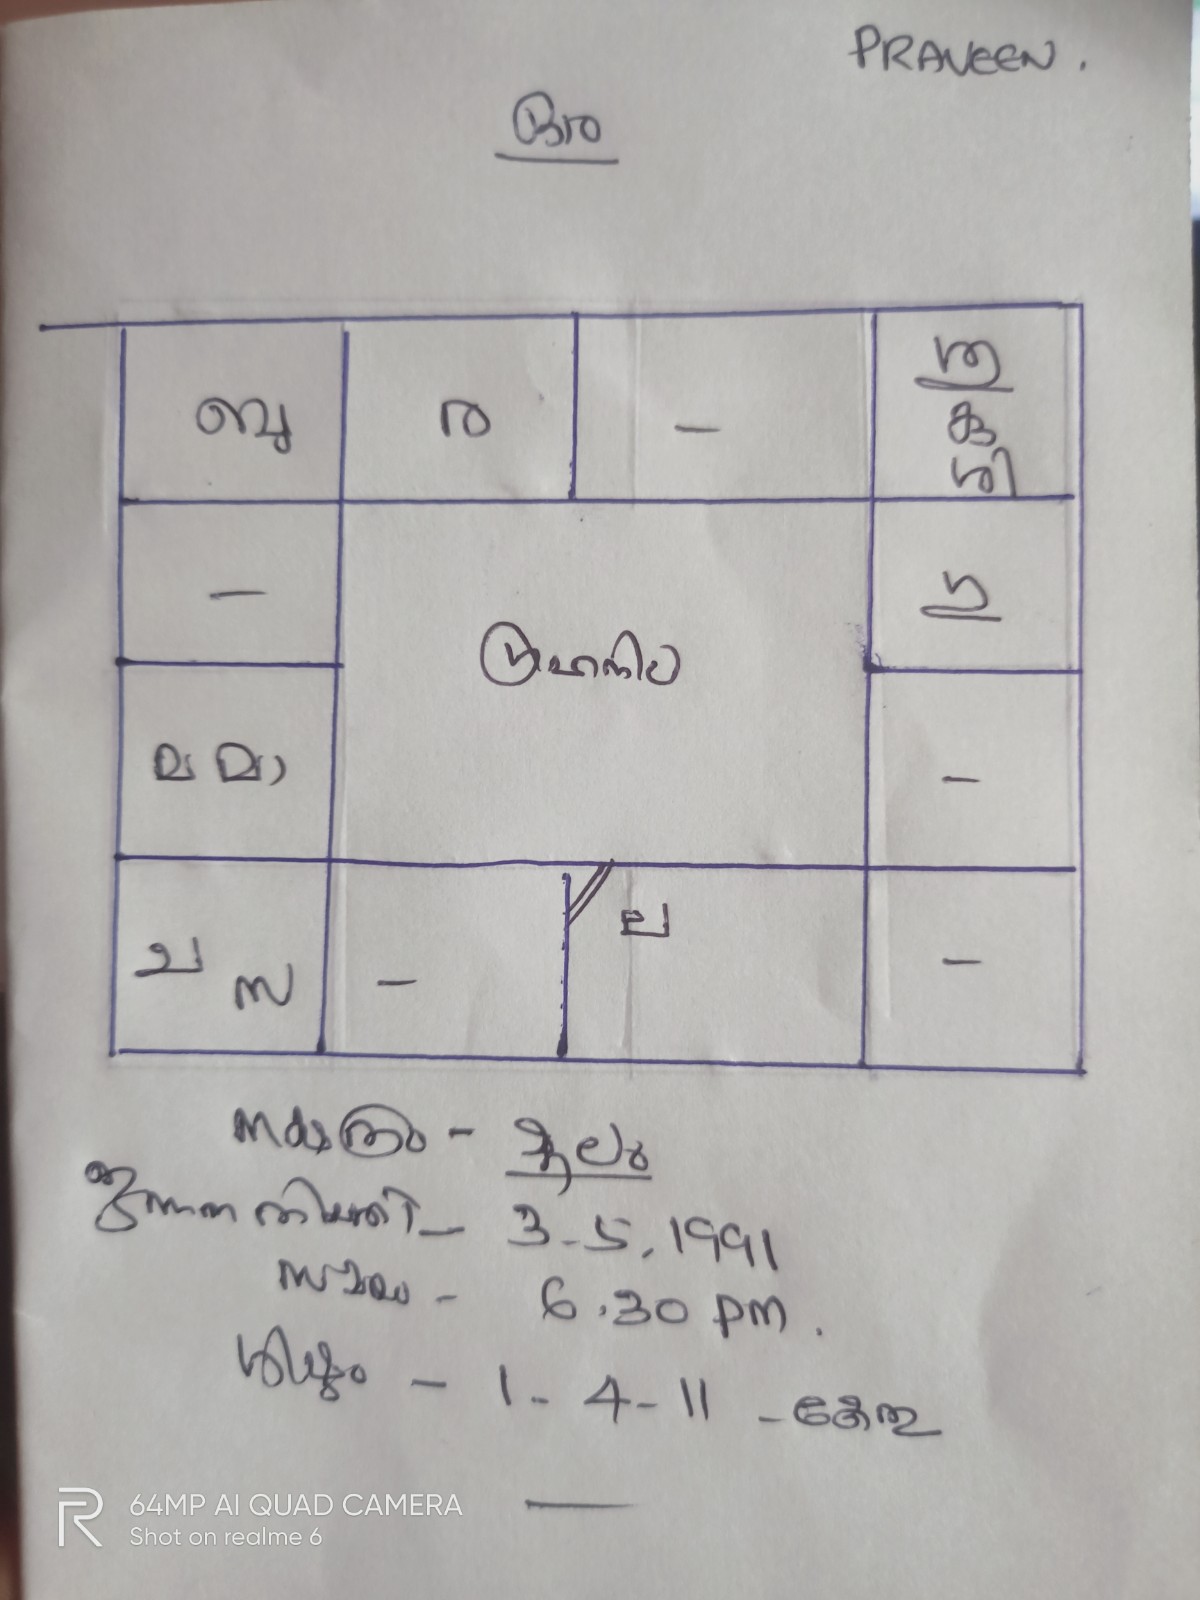 PRAVEEN.
ശ്രീ
ബു ര — ശു കു ശി
— ഗു
ഗ്രഹനില
മ മാ —
ച സ — ല —
നക്ഷത്രം - മൂലം
ജനന തിയതി - 3-5.1991
സമയം - 6.30 pm.
ശിഷ്ടം - 1-4-11 - കേതു
64MP AI QUAD CAMERA
Shot on realme 6